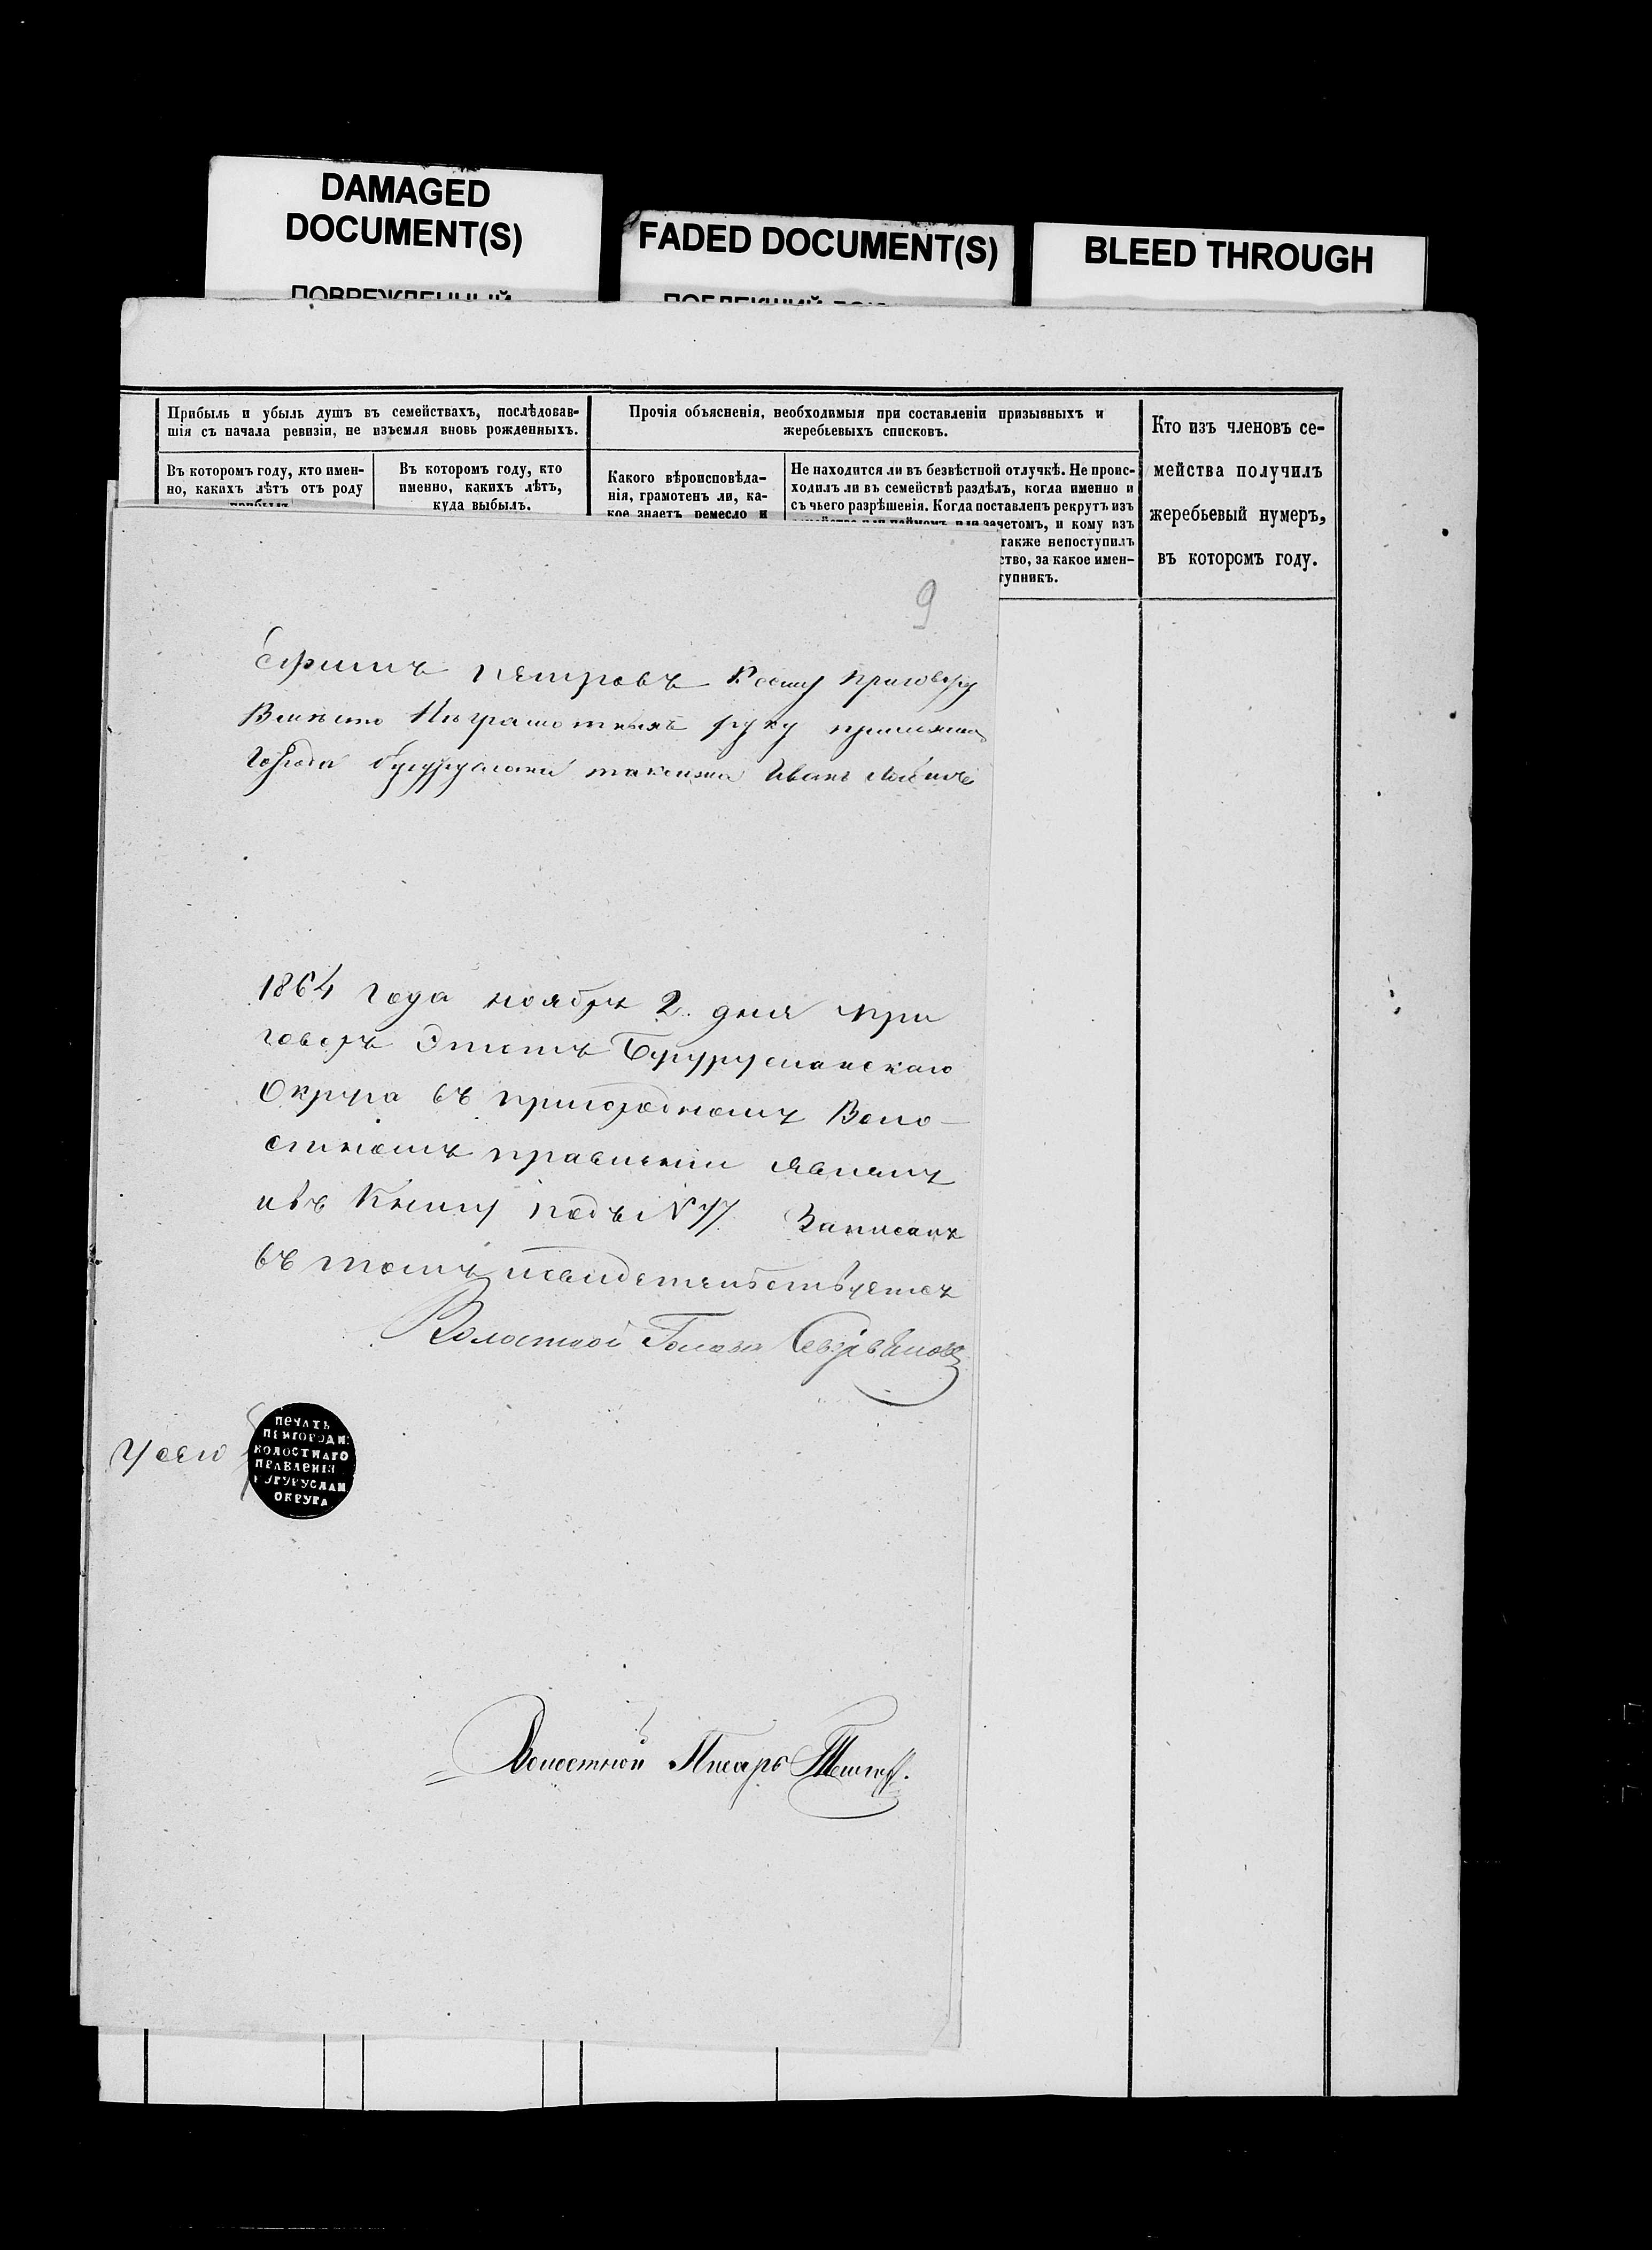 DAMAGED
DOCUMENT(S)
FADED DOCUMENT(S)
BLEED THROUGH
Прибыль и убыль душъ въ семействахъ, послѣдовав-
шія съ начала ревизіи, не изъемля вновь рожденныхъ.
Въ которомъ году, кто имен-
но, какихъ лѣтъ отъ роду
прибылъ
Въ которомъ году, кто
именно, какихъ лѣтъ,
куда выбылъ.
Прочія объясненія, необходимыя при составленіи призывныхъ и
жеребьевыхъ списковъ.
Какого вѣроисповѣда-
нія, грамотенъ ли, ка-
кое знаетъ ремесло и
Не находится ли въ безвѣстной отлучкѣ. Не проис-
ходилъ ли въ семействѣ раздѣлъ, когда именно и
съ чьего разрѣшенія. Когда поставленъ рекрутъ изъ
зачетомъ, и кому изъ
также непоступилъ
ство, за какое имен-
тупникъ.
Кто изъ членовъ се-
мейства получилъ
жеребьевый нумеръ,
въ которомъ году.
9
Ефимъ Петровъ Ксему приговору
Вмѣсто Неграмотныхъ руку
города бугуруслана Иванъ
1864 года ноября 2 дня при
говоръ Этотъ Бугурусланскаго
Округа въ пригородномъ Воло-
стномъ правленіи явленъ
ивъ Книгу подъ № 77 Записанъ
въ томъ исвидетельствуется
Волостной Голова
У сего
ПЕЧАТЬ
ПРИГОРОДН:
ВОЛОСТНАГО
ПРАВЛЕНІЯ
БУГУРУСЛАН
ОКРУГА
Волостной Писарь